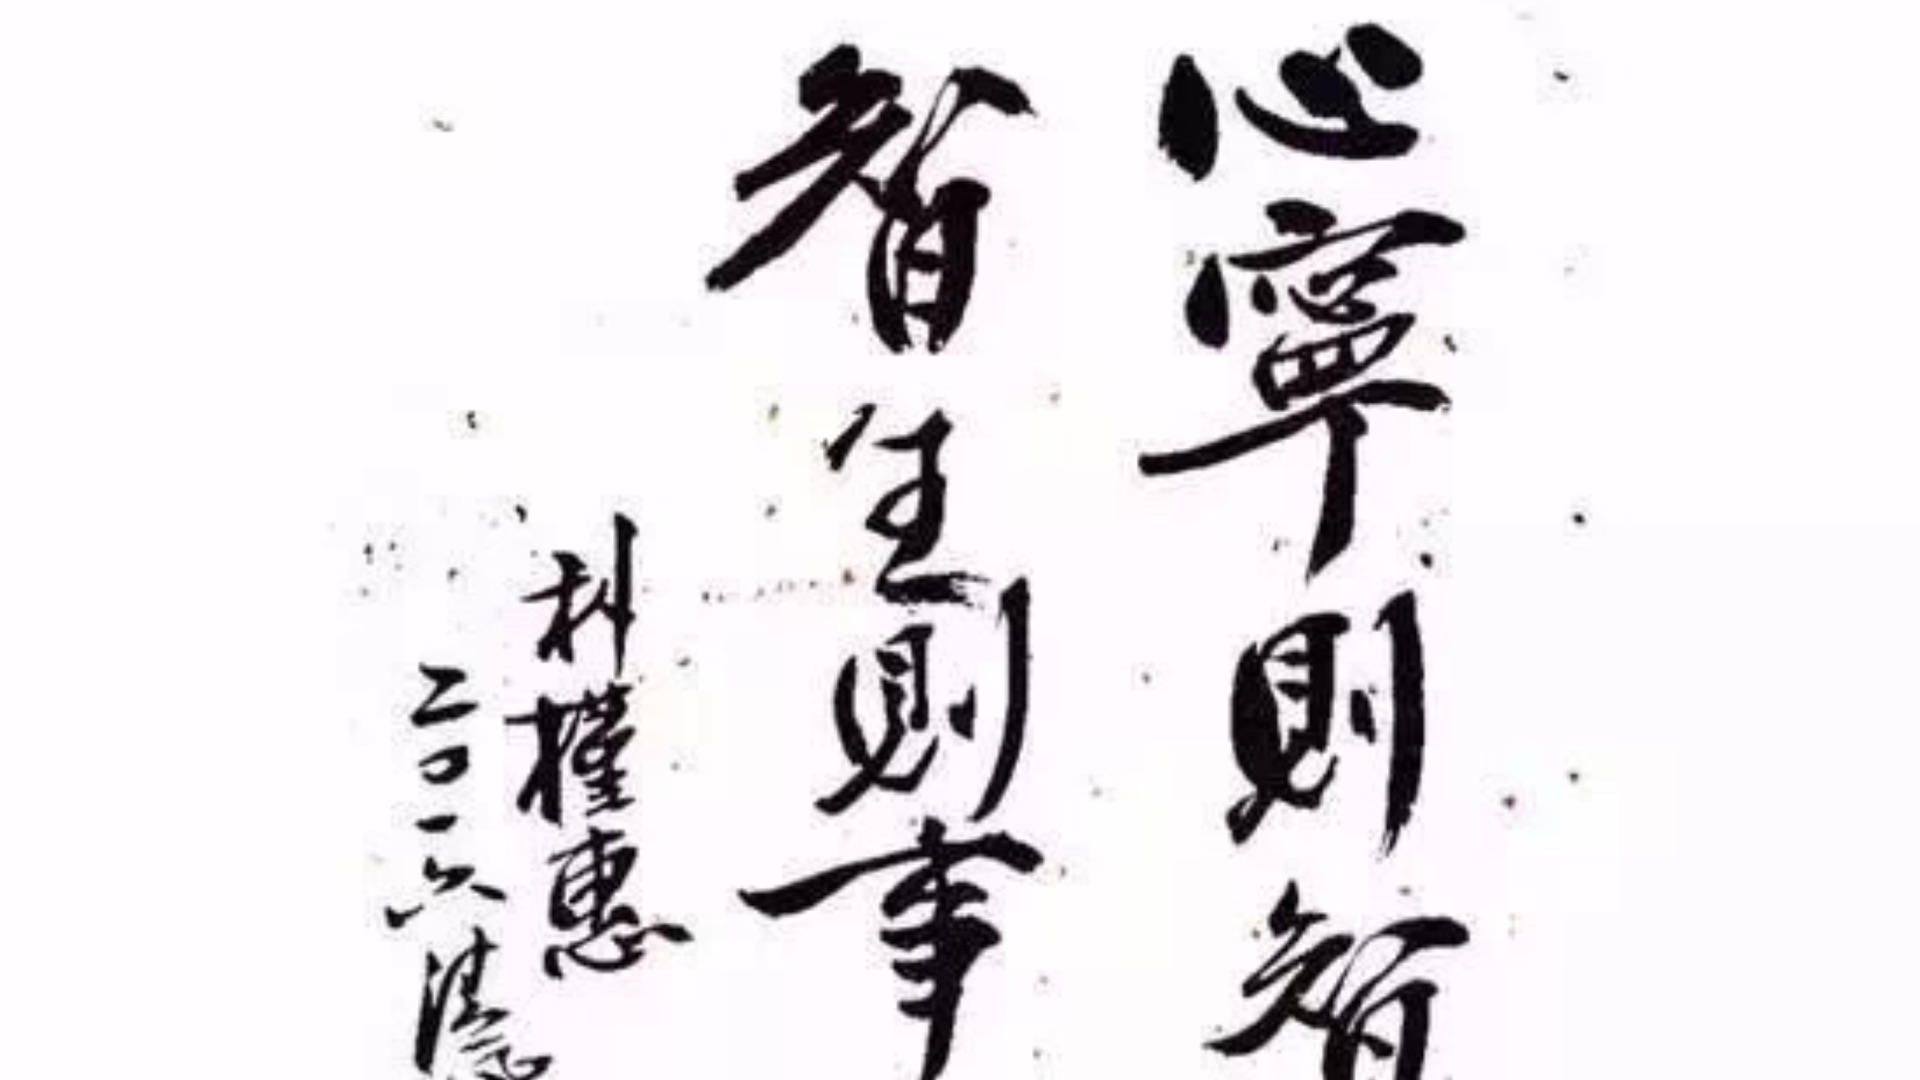 心寧則智
智生則事
朴槿惠
二〇一六